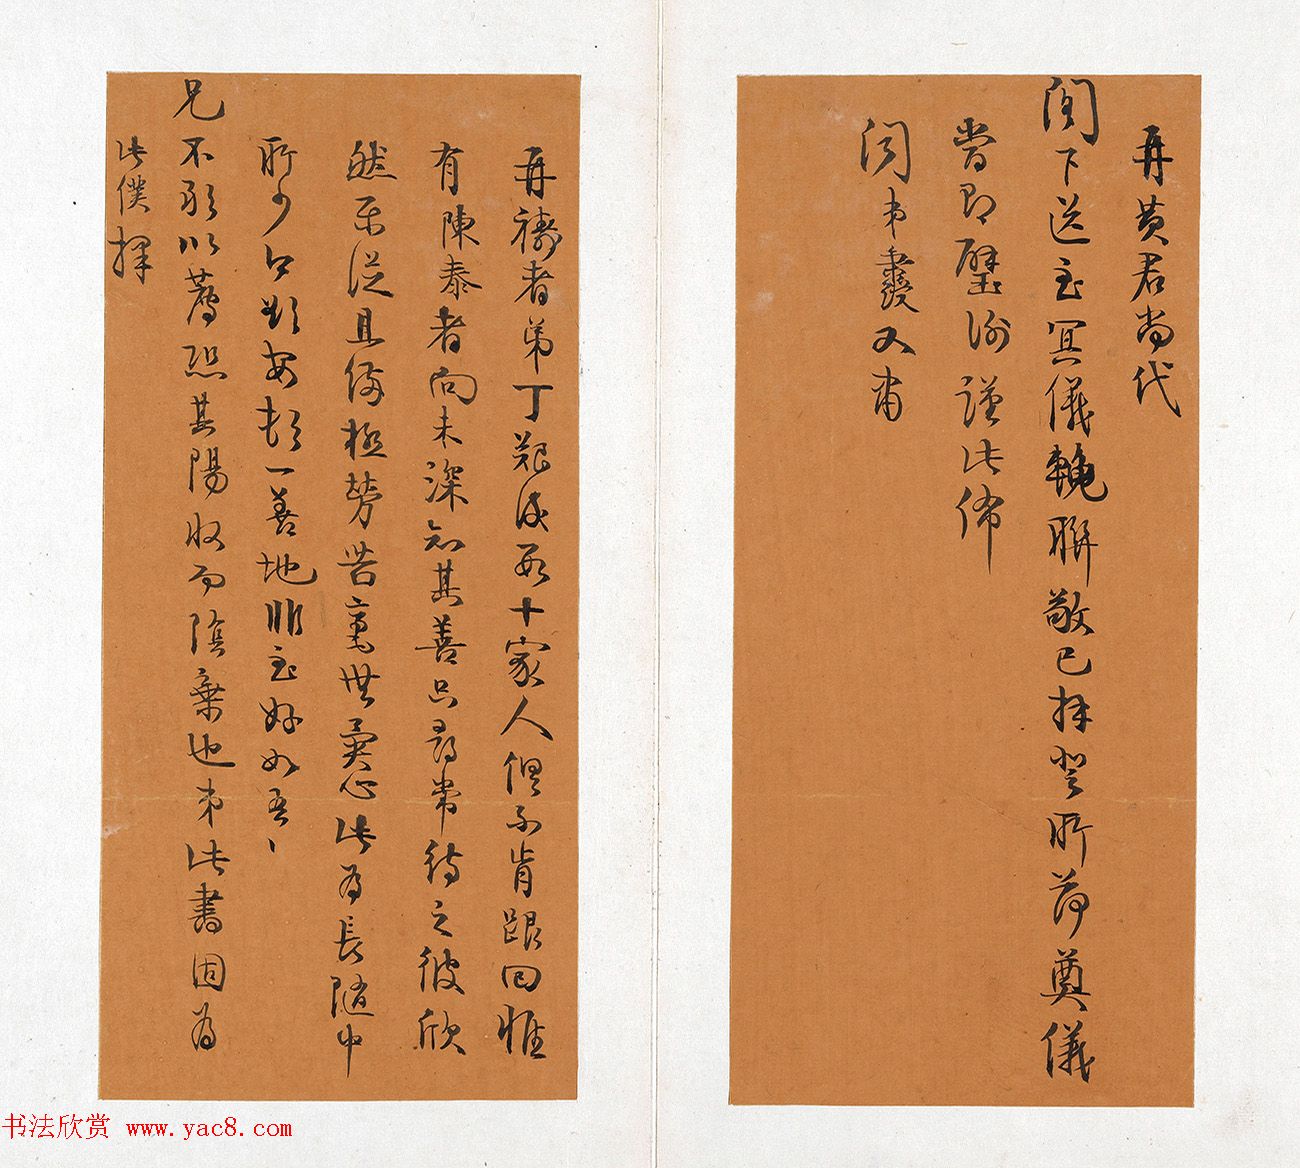 再黄君尚代
阁下送至冥儀輓聯敬已拜登所荷奠儀
嘗即璧謝謹此佈
闻弟夔又肅
再禱者弟丁艱後數十家人俱不肯跟回惟
有陳泰者向未深知其善只尋常待之彼欣
然樂從且備極勞苦毫無異心此為長隨中
所少如欺安頓一善地非至好如吾
兄不敢以薦恐其陽收而陰棄也弟此書固為
此僕擇
书法欣赏 www.yac8.com